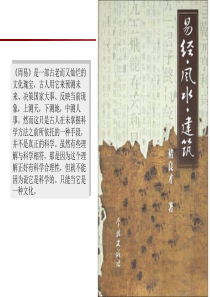 《周易》是一部古老而又灿烂的
文化瑰宝，古人用它来预测未
来、决策国家大事、反映当前现
象，上测天，下测地，中测人
事。然而这只是古人在未掌握科
学方法之前所依托的一种手段，
并不是真正的科学。虽然有些理
解与科学相符，那是因为这个理
解正好有科学合理性，但就不能
因为说它是科学的。只能当它是
一种文化。
易经·风水·建筑
褚良才 著
学林出版社